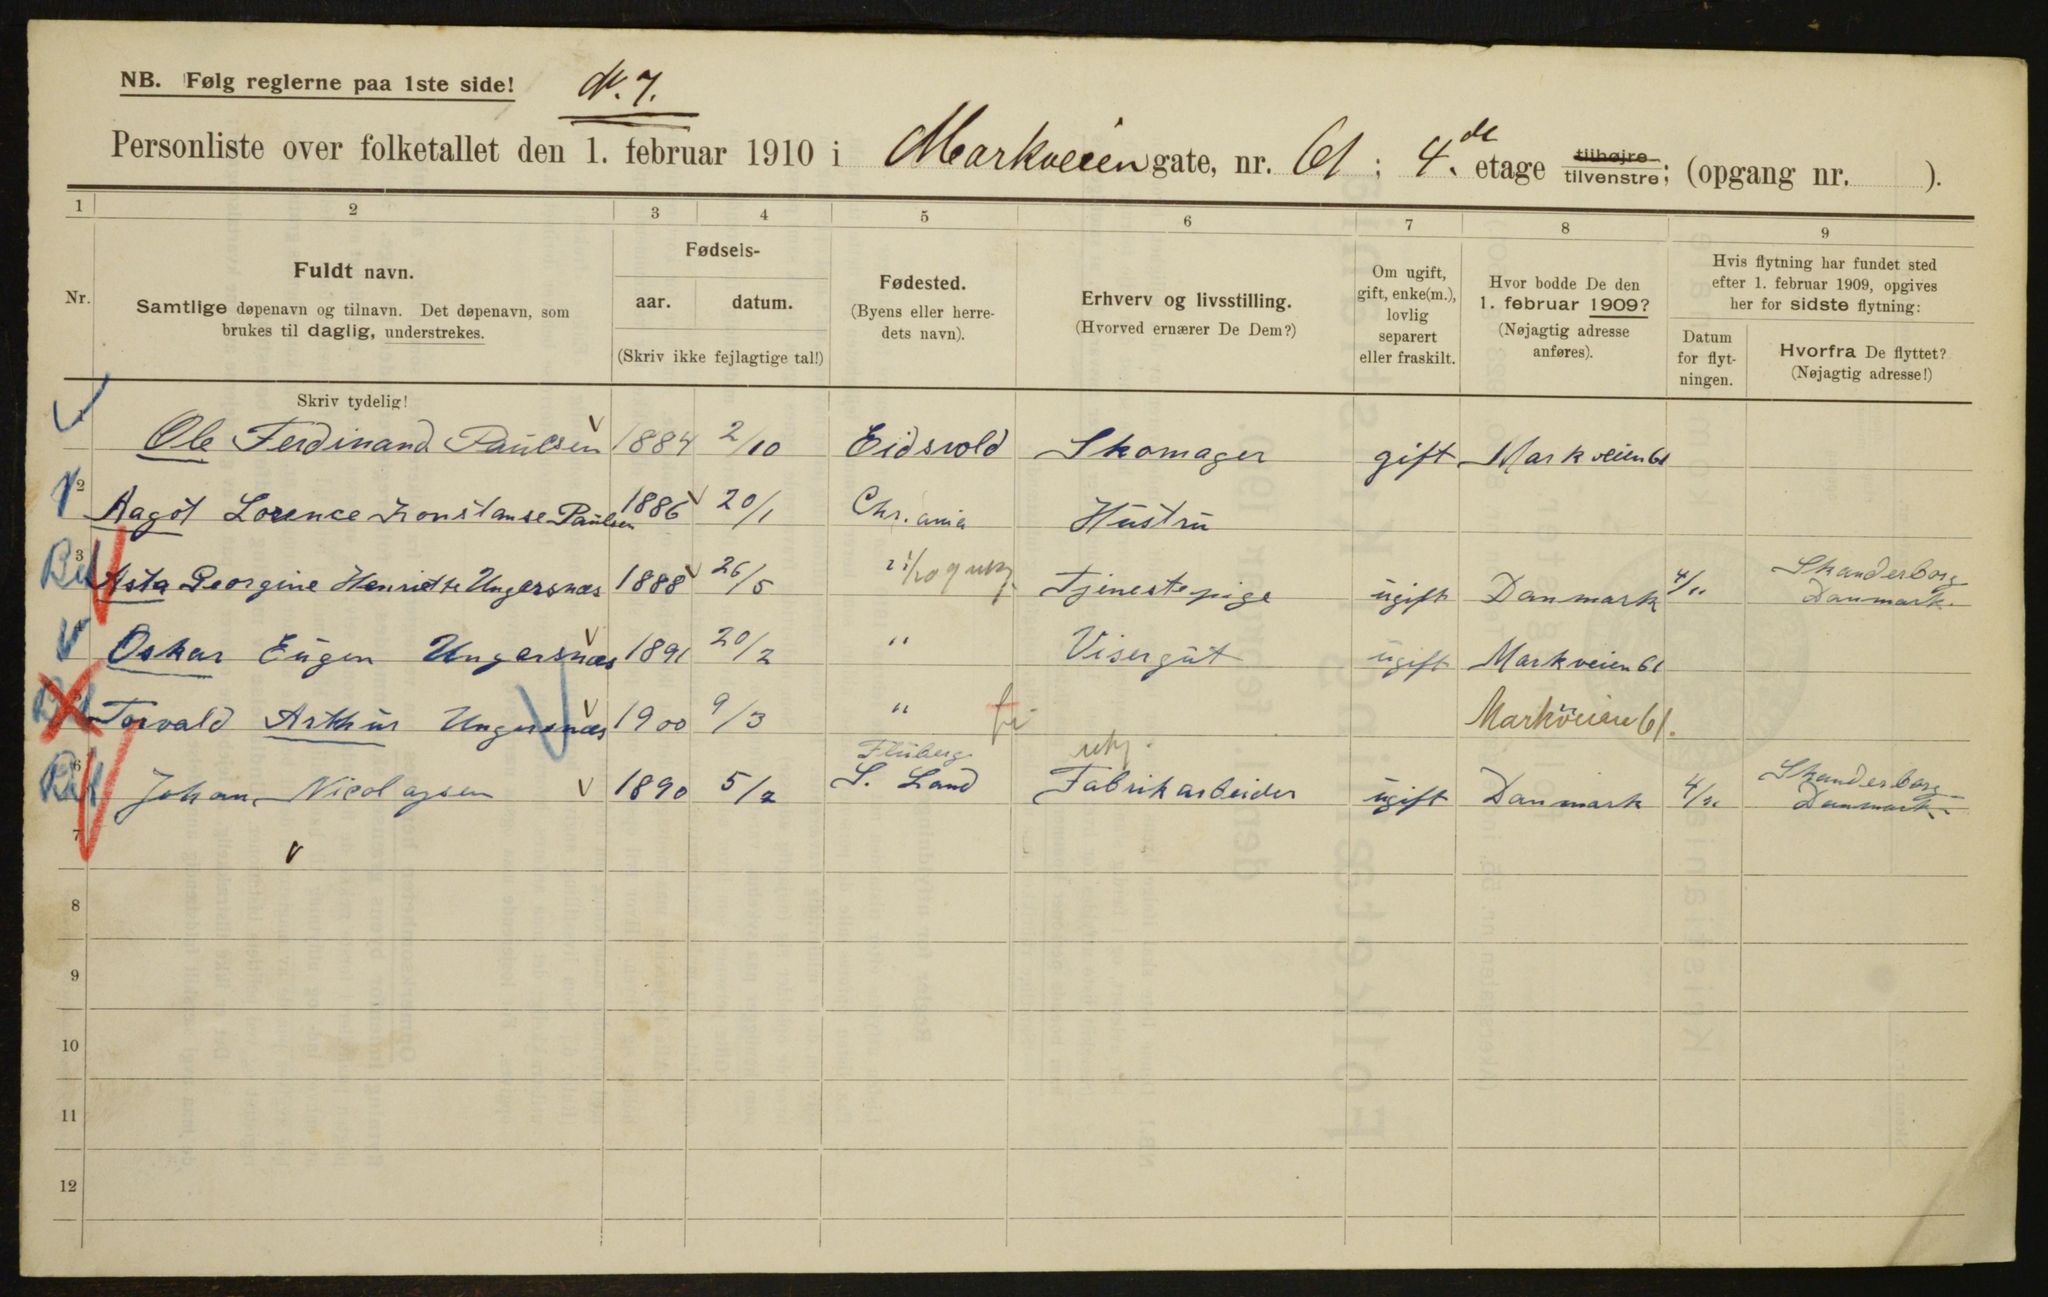 NB. Følg reglerne paa 1ste side!
N. 7.
Personliste over folketallet den 1. februar 1910 i Markveien gate, nr. 61; 4.de etage tilhøjre tilvenstre; (opgang nr. ).
1 2 3 4 5 6 7 8 9
Nr.
Fuldt navn.
Samtlige døpenavn og tilnavn. Det døpenavn, som
brukes til daglig, understrekes.
Skriv tydelig!
Fødsels-
aar. datum.
(Skriv ikke fejlagtige tal!)
Fødested.
(Byens eller herre-
dets navn).
Erhverv og livsstilling.
(Hvorved ernærer De Dem?)
Om ugift,
gift, enke(m.),
lovlig
separert
eller fraskilt.
Hvor bodde De den
1. februar 1909?
(Nøjagtig adresse
anføres).
Hvis flytning har fundet sted
efter 1. februar 1909, opgives
her for sidste flytning:
Datum
for flyt-
ningen.
Hvorfra De flyttet?
(Nøjagtig adresse!)
Ole Ferdinand Paulsen 1884 2/10 Eidsvold Skomager gift Markveien 61
2 Aagot Lorence Konstanse Paulsen 1886 20/1 Chr.ania Hustru
3 Asta Georgine Henriette Ungersnæs 1888 26/5 Tjenestepige ugift Danmark 4/11 Skanderborg Danmark.
Oskar Eugen Ungersnæs 1891 20/2 " Visergut ugift Markveien 61
5 Torvald Arthur Ungersnæs 1900 9/3 " Markveien 61.
6 Johan Nicolaysen 1890 5/2 Fluberg S. Land Fabrikarbeider ugift Danmark 4/11 Skanderborg Danmark.
7
8
9
10
11
12